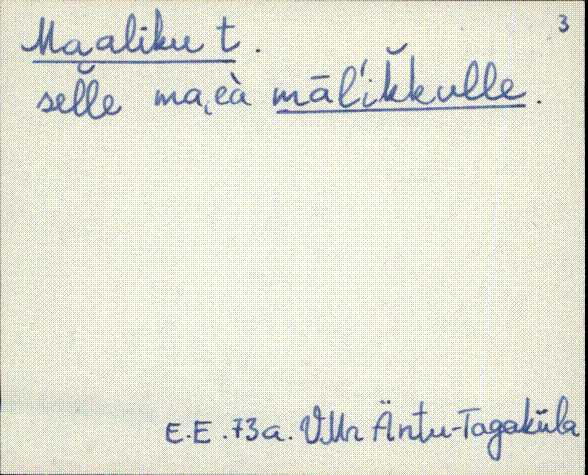 3
Maaliku t.
sel̆le ma̭eà māl'ik̆kulle.
E.E. 73a. VMr Äntu-Tagaküla